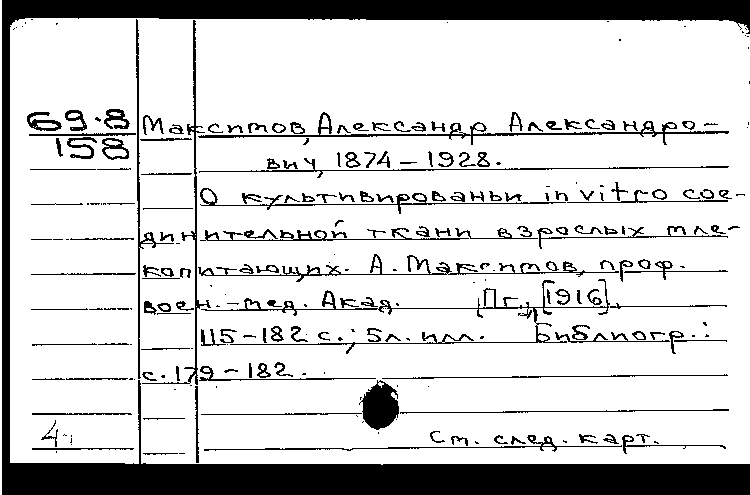 69.8
158
Максимов, Александр Александро-
вич, 1874 – 1928.
О культивированьи in vitro сое-
динительной ткани взрослых мле-
копитающих. А. Максимов, проф.
воен.-мед. Акад. [Пг., [1916].
115-182 с.; 5л. илл. Библиогр.:
с. 179-182.
См. след. карт.